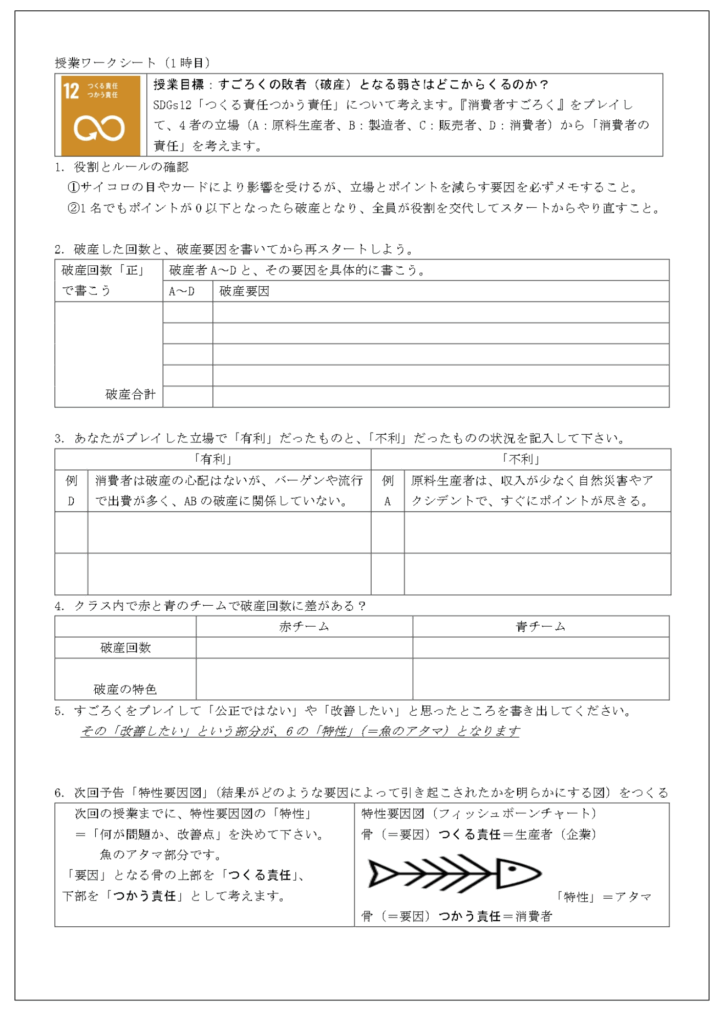 授業ワークシート（1時目）
12 つくる責任
つかう責任
授業目標：すごろくの敗者（破産）となる弱さはどこからくるのか？
SDGs12「つくる責任つかう責任」について考えます。『消費者すごろく』をプレイし
て、4者の立場（A：原料生産者、B：製造者、C：販売者、D：消費者）から「消費者の
責任」を考えます。
1. 役割とルールの確認
①サイコロの目やカードにより影響を受けるが、立場とポイントを減らす要因を必ずメモすること。
②1名でもポイントが0以下となったら破産となり、全員が役割を交代してスタートからやり直すこと。
2. 破産した回数と、破産要因を書いてから再スタートしよう。
破産回数「正」
で書こう
破産者A～Dと、その要因を具体的に書こう。
A～D 破産要因
破産合計
3. あなたがプレイした立場で「有利」だったものと、「不利」だったものの状況を記入して下さい。
「有利」 「不利」
例
D
消費者は破産の心配はないが、バーゲンや流行
で出費が多く、ABの破産に関係していない。
例
A
原料生産者は、収入が少なく自然災害やア
クシデントで、すぐにポイントが尽きる。
4. クラス内で赤と青のチームで破産回数に差がある？
赤チーム 青チーム
破産回数
破産の特色
5. すごろくをプレイして「公正ではない」や「改善したい」と思ったところを書き出してください。
その「改善したい」という部分が、6の「特性」（＝魚のアタマ）となります
6. 次回予告「特性要因図」（結果がどのような要因によって引き起こされたかを明らかにする図）をつくる
次回の授業までに、特性要因図の「特性」
＝「何が問題か、改善点」を決めて下さい。
魚のアタマ部分です。
「要因」となる骨の上部を「つくる責任」、
下部を「つかう責任」として考えます。
特性要因図（フィッシュボーンチャート）
骨（＝要因）つくる責任＝生産者（企業）
「特性」＝アタマ
骨（＝要因）つかう責任＝消費者